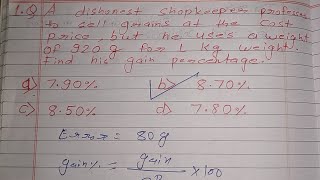 1.Q A dishonest shopkeeper professes
to sell grains at the cost
price, but he uses a weight
of 920 g for 1 kg weight.
Find his gain percentage.
a) 7.90% b) 8.70%
c) 8.50% d) 7.80%
Error = 80 g
gain% = gain × 100